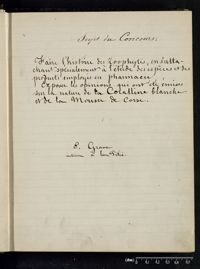 Sujet du Concours.
Faire l'histoire des Zoophytes, en s'atta-
chant spécialement à l'étude des espèces et des
produits employés en pharmacie
Exposer les opinions qui ont été émises
sur la nature de la Coralline blanche
et de la Mousse de Corse.
E.
interne à